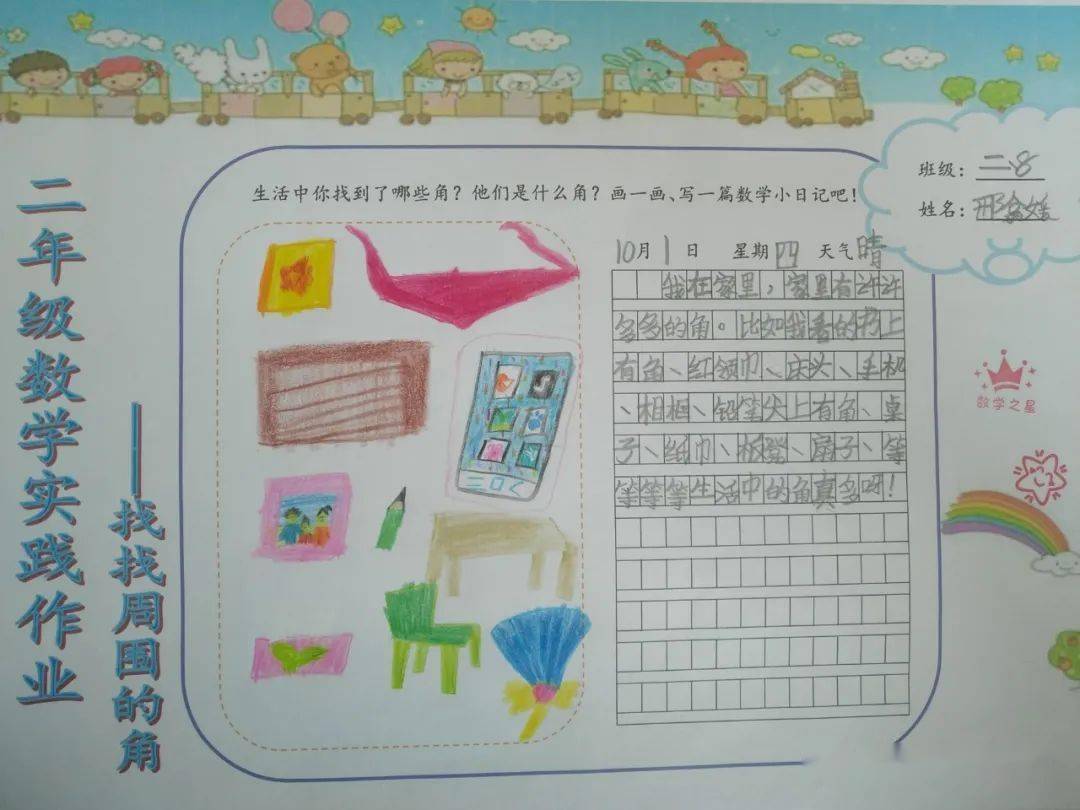 二年级数学实践作业
——找找周围的角
生活中你找到了哪些角？他们是什么角？画一画、写一篇数学小日记吧！
班级：二、8
姓名：邢
10月1日 星期四 天气晴
我在家里，家里有许许
多多的角。比如我看的书上
有角、红领巾、床头、手机
、相框、铅笔尖上有角、桌
子、纸巾、板凳、扇子、等
等等等生活中的角真多呀！
数学之星